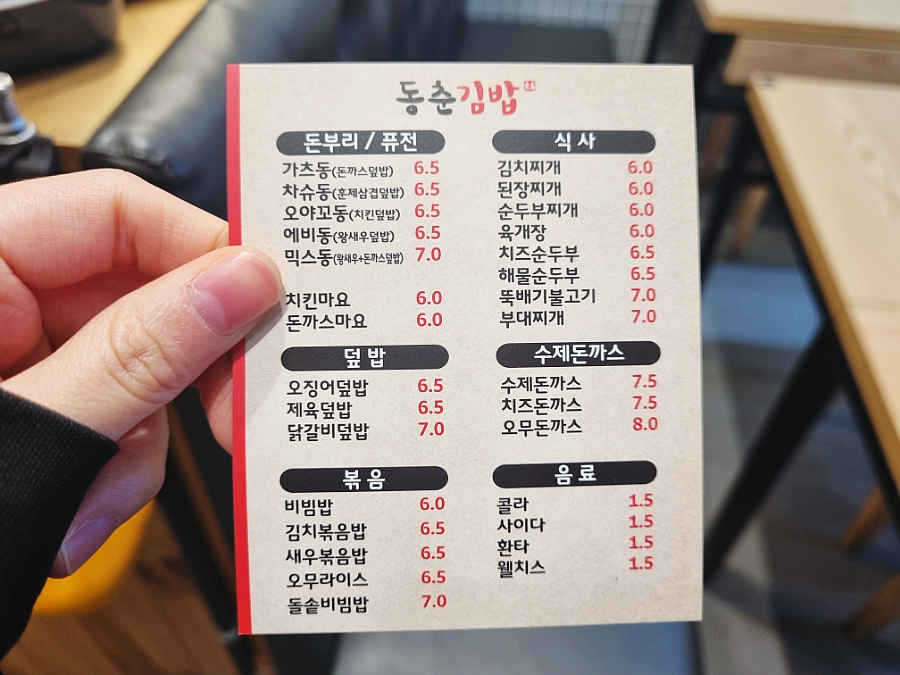 동춘김밥
돈부리 / 퓨전
가츠동(돈까스덮밥) 6.5
차슈동(훈제삼겹덮밥) 6.5
오야꼬동(치킨덮밥) 6.5
에비동(왕새우덮밥) 6.5
믹스동(왕새우+돈까스덮밥) 7.0
치킨마요 6.0
돈까스마요 6.0
덮밥
오징어덮밥 6.5
제육덮밥 6.5
닭갈비덮밥 7.0
볶음
비빔밥 6.0
김치볶음밥 6.5
새우볶음밥 6.5
오무라이스 6.5
돌솥비빔밥 7.0
식사
김치찌개 6.0
된장찌개 6.0
순두부찌개 6.0
육개장 6.0
치즈순두부 6.5
해물순두부 6.5
뚝배기불고기 7.0
부대찌개 7.0
수제돈까스
수제돈까스 7.5
치즈돈까스 7.5
오무돈까스 8.0
음료
콜라 1.5
사이다 1.5
환타 1.5
웰치스 1.5